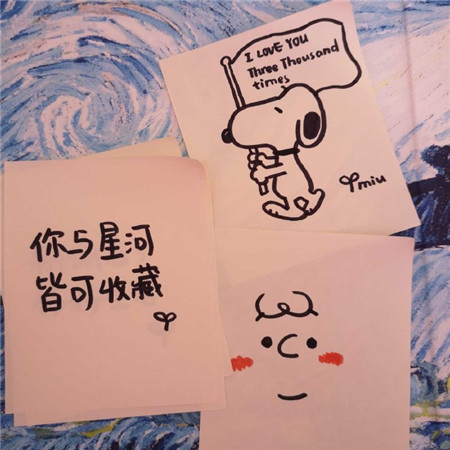 I LOVE YOU
Three Thousand
times
miu
你与星河
皆可收藏